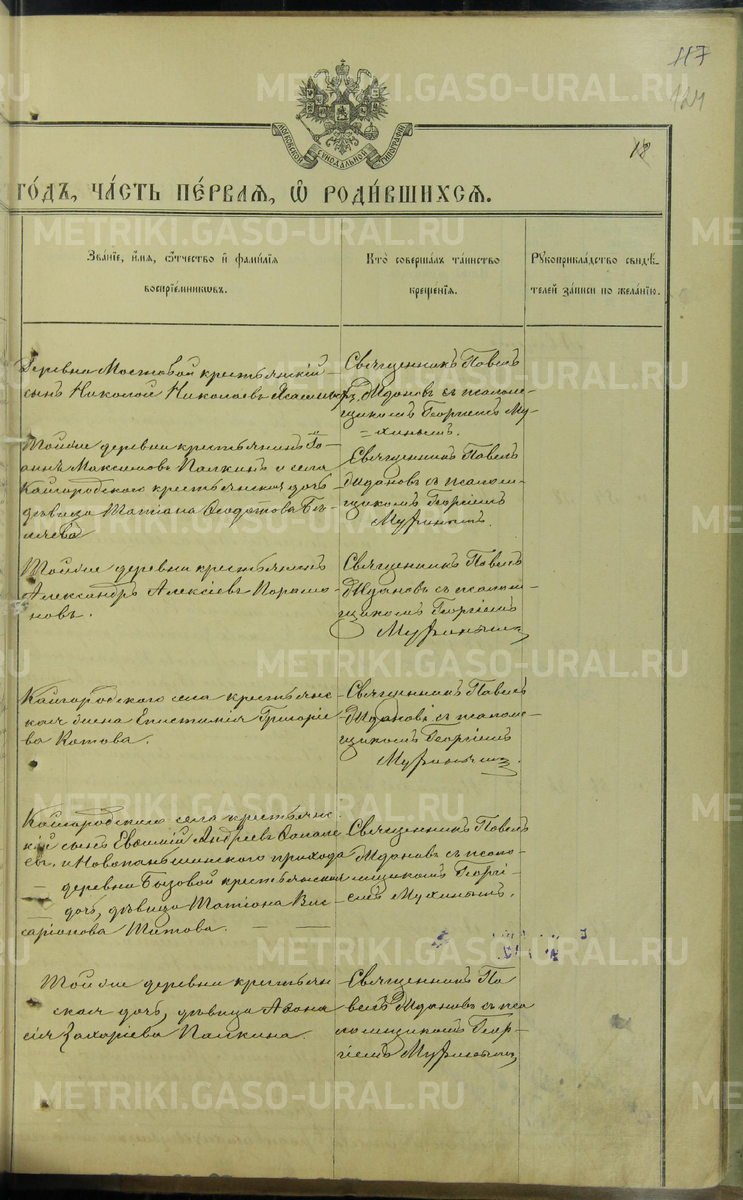 117
124
МОСКОВСКОЙ СѴНОДАЛЬНОЙ ТИПОГРАФІИ
18
ГО́ДЪ, ЧА́СТЬ ПЕ́РВАЯ, Ѡ҆ РОДИ́ВШИХСЯ.
Зва́нїе, и҆́мя, ѻ҆́тчество и҆ фами́лїя
воспрїе́мниковъ.
Кто̀ соверша́лъ та́инство
креще́нїя.
Рꙋкоприкла́дство свидѣ́-
телей за́писи по жела́нїю.
Деревни Мостовой крестьянскій
сынъ Николай Николаевъ
Священникъ Павелъ
Ждановъ съ псалом-
щикомъ Георгіемъ Му-
хинымъ.
Тойже деревни крестьянинъ Іо-
аннъ Максимовъ Палкинъ и села
Кайгородскаго крестьянская дочь
дѣвица Татіана Ѳеодотова
Священникъ Павелъ
Ждановъ съ псалом-
щикомъ Георгіемъ
Мухинымъ.
Тойже деревни крестьянинъ
Александръ Алексіевъ
новъ.
Священникъ Павелъ
Ждановъ съ псалом-
щикомъ Георгіемъ
Мухинымъ
Кайгородскаго села крестьянс-
кая жена Епистимія Григоріе-
ва Котова.
Священникъ Павелъ
Ждановъ съ псалом-
щикомъ Георгіемъ
Мухинымъ.
Кайгородскаго села крестьянс-
кій сынъ Евѳимій Андреевъ
и Новопаньшинскаго прихода
деревни Бызовой крестьянская
дочь, дѣвица Татіана Вис-
саріонова Титова.
Священникъ Павелъ
Ждановъ съ псало-
мщикомъ Георгі-
емъ Мухинымъ.
Тойже деревни крестьян-
ская дочь, дѣвица Аѳана
сія Захаріева Палкина.
Священникъ Па
велъ Ждановъ съ пса
ломщикомъ Геор-
гіемъ Мухинымъ
METRIKI.GASO-URAL.RU